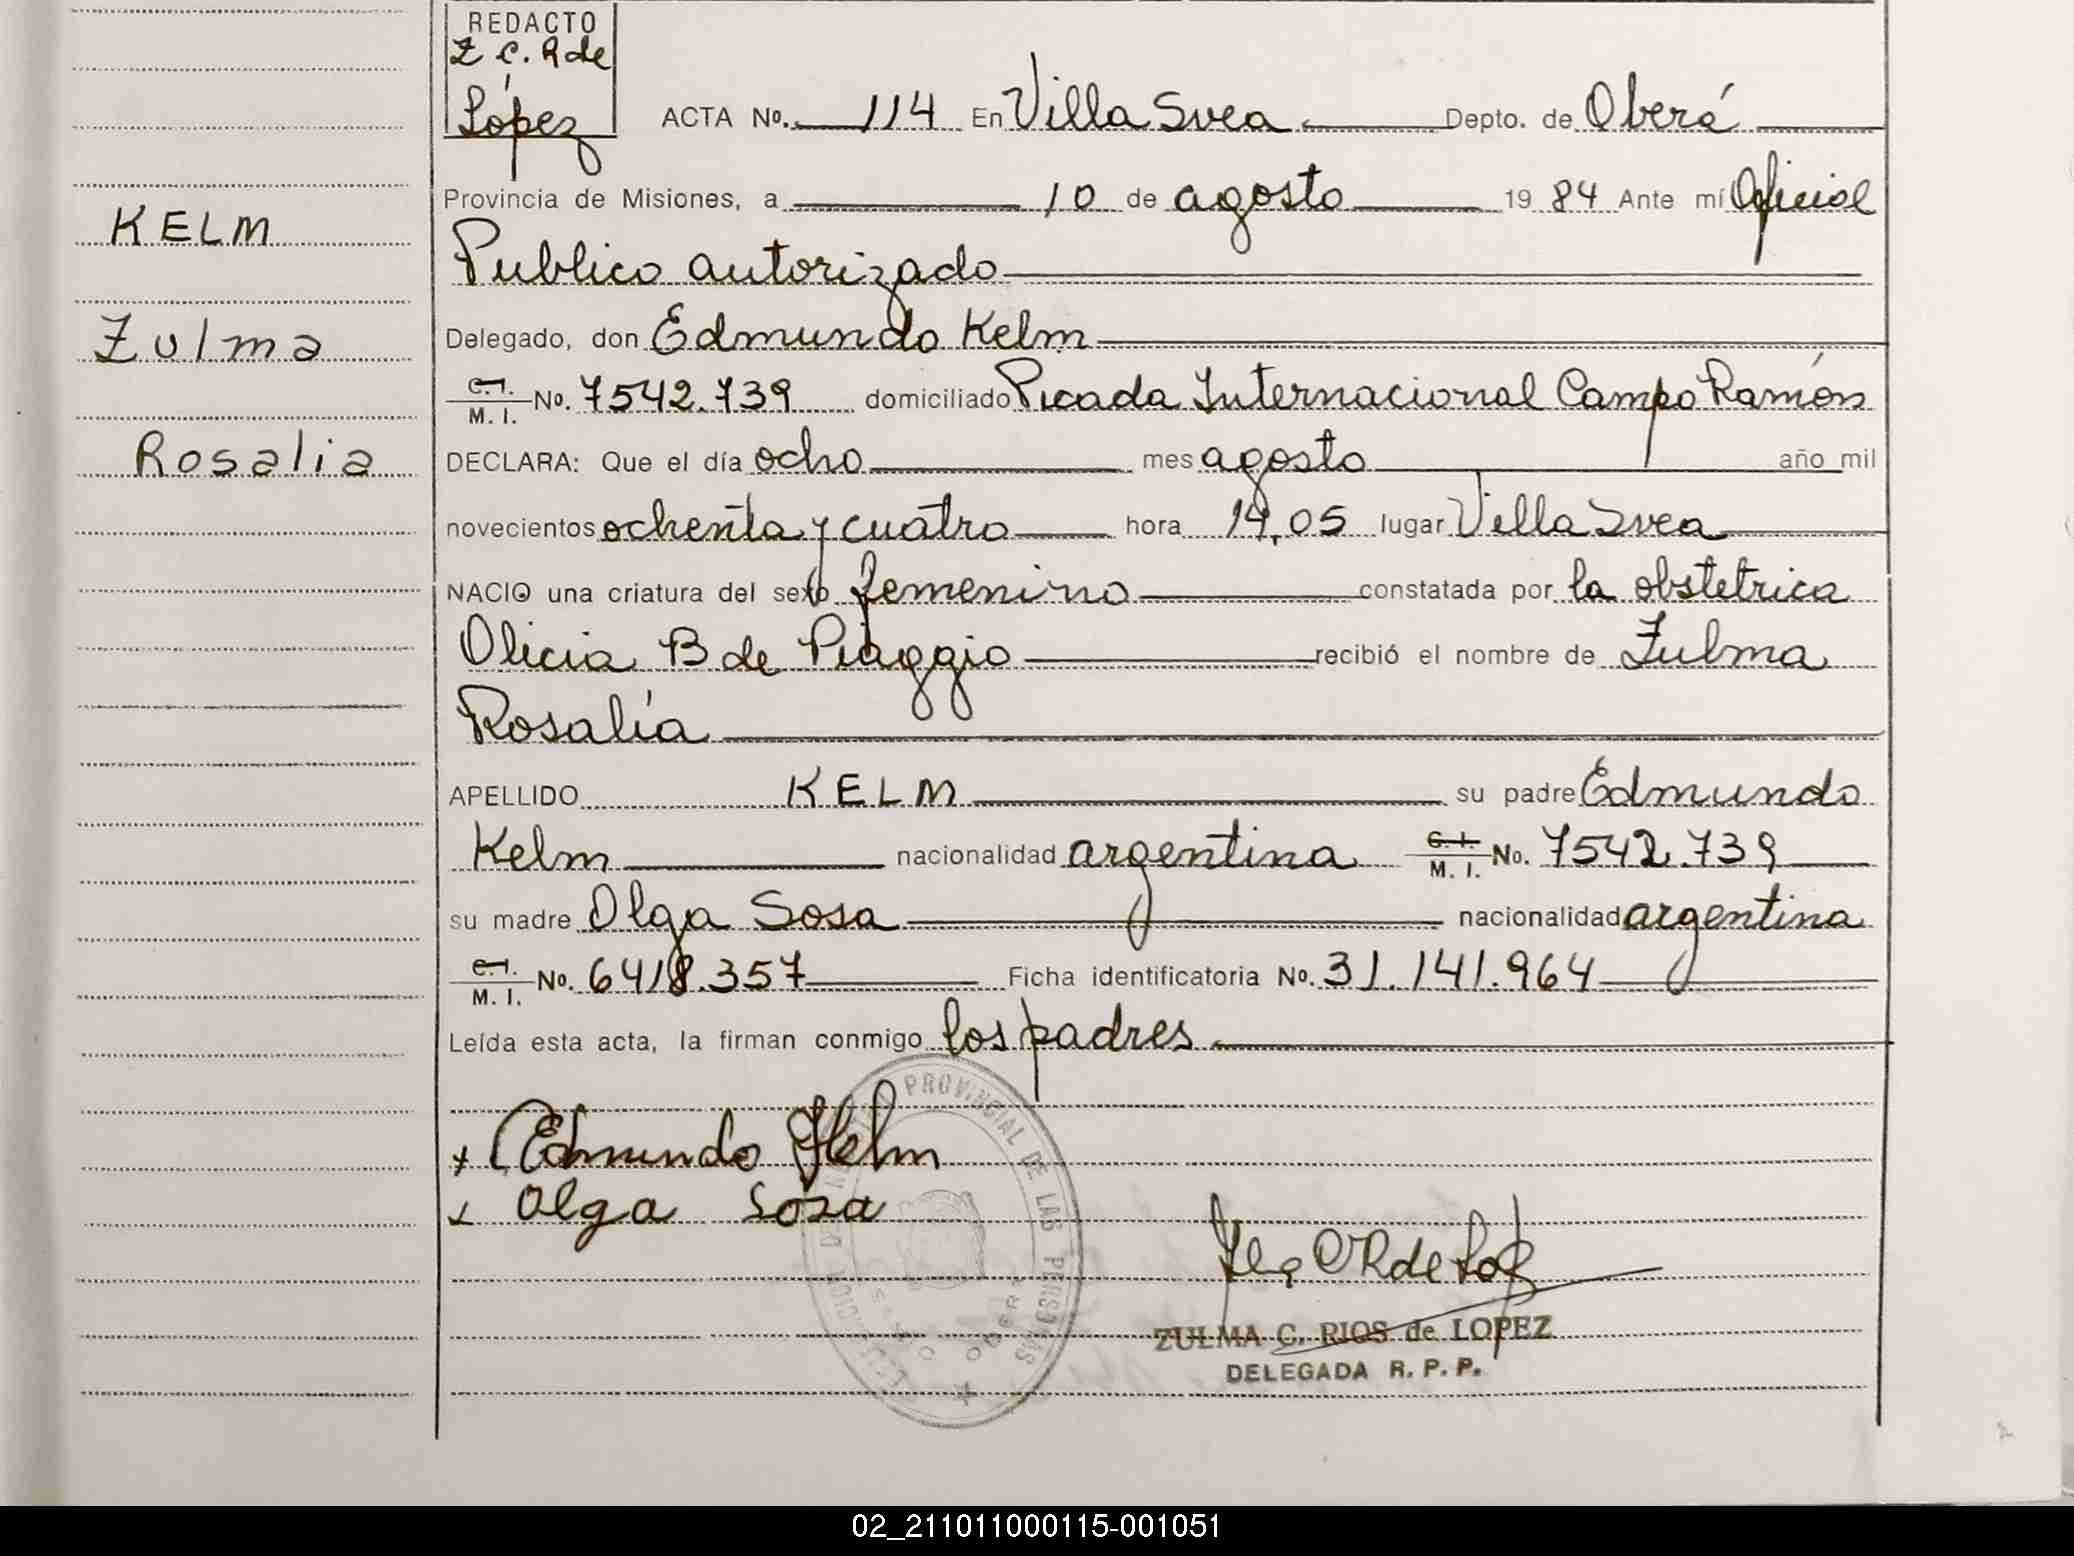 REDACTO
Z C. R de
López
ACTA No. 114 En Villa Svea Depto. de Oberá
Provincia de Misiones, a 10 de agosto 1984 Ante mí Oficial
Publico autorizado
Delegado, don Edmundo Kelm
C. I. / M. I. No. 7542.739 domiciliado Picada Internacional Campo Ramón
DECLARA: Que el día ocho mes agosto año mil
novecientos ochenta y cuatro hora 14,05 lugar Villa Svea
NACIO una criatura del sexo femenino constatada por la obstetrica
Olicia B de Piaggio recibió el nombre de Zulma
Rosalía
APELLIDO KELM su padre Edmundo
Kelm nacionalidad argentina C. I. / M. I. No. 7542.739
su madre Olga Sosa nacionalidad argentina
C. I. / M. I. No. 6418.357 Ficha identificatoria No. 31.141.964
Leída esta acta, la firman conmigo los padres
Edmundo Kelm
Olga Sosa
ZULMA C. RIOS de LOPEZ
DELEGADA R. P. P.
KELM
Zulma
Rosalia
PROVINCIAL DE LAS PERSONAS
02_211011000115-001051